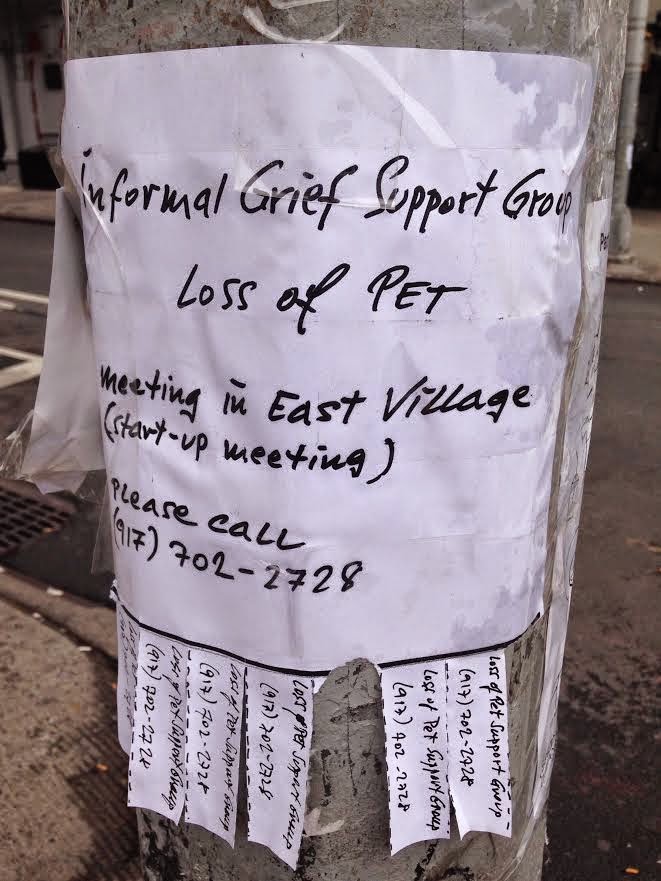 Informal Grief Support Group
Loss of PET
meeting in East Village
(start-up meeting)
please call
(917) 702-2728
Loss of Pet Support Group
(917) 702-2728
Loss of Pet Support Group
(917) 702-2728
Loss of Pet Support Group
(917) 702-2728
Loss of Pet Support Group
(917) 702-2728
Loss of Pet Support Group
(917) 702-2728